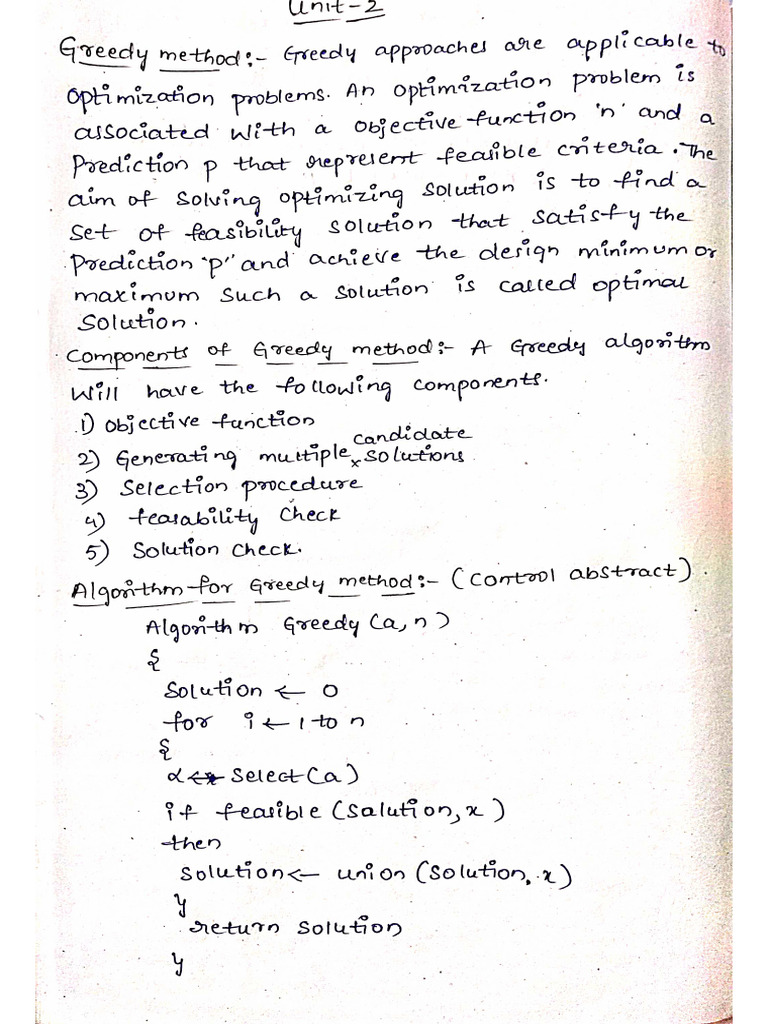 Unit-2
Greedy method:- Greedy approaches are applicable to
optimization problems. An optimization problem is
associated with a objective function 'n' and a
Prediction p that represent feasible criteria. The
aim of solving optimizing solution is to find a
set of feasibility solution that satisfy the
Prediction "p" and achieve the design minimum or
maximum such a solution is called optimal
solution.
Components of Greedy method:- A Greedy algorithm
Will have the following components.
1) objective function
2) Generating multiple candidate solutions
3) Selection procedure
4) feasability check
5) Solution check.
Algorithm for Greedy method:- (Control abstract).
Algorithm Greedy (a, n)
{
Solution ← 0
for i ← 1 to n
{
x ← Select (a)
if feasible (Salution, x)
then
Solution ← union (Solution, x)
}
return solution
}